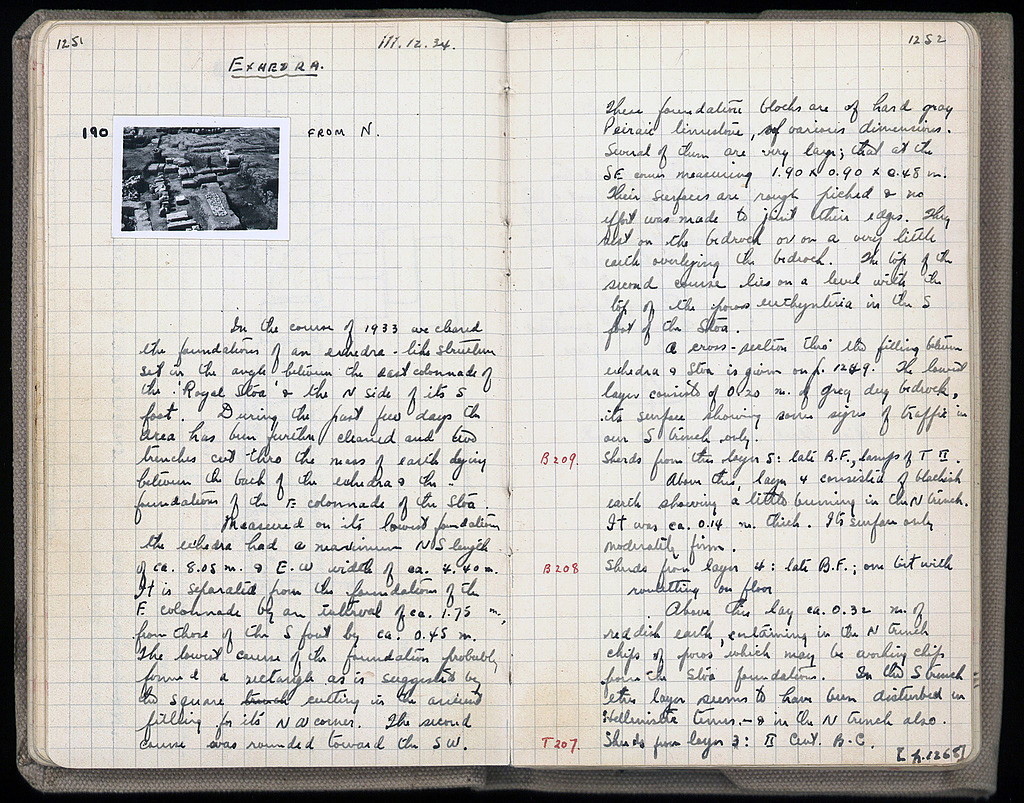 1251
III.12.34.
EXHEDRA.
190
FROM N.
In the course of 1933 we cleared
the foundations of an exhedra-like structure
set in the angle between the east colonnade of
the 'Royal Stoa' & the N side of its S
foot. During the past few days the
area has been further cleaned and two
trenches cut thro the mass of earth lying
between the back of the exhedra & the
foundations of the E colonnade of the Stoa.
Measured on its lowest foundations
the exhedra had a maximum NS length
of ca. 8.05 m. & E.W width of ca. 4.40 m.
It is separated from the foundations of the
E colonnade by an interval of ca. 1.75 m,
from those of the S foot by ca. 0.45 m.
The lowest course of the foundation probably
formed a rectangle as is suggested by
the square trench cutting in the ancient
filling for its N W corner. The second
course was rounded toward the SW.
1252
These foundation blocks are of hard gray
Peiraic limestone, of various dimensions.
Several of them are very large; that at the
SE corner measuring 1.90 x 0.90 x 0.48 m.
Their surfaces are rough picked & no
effort was made to joint their edges. They
rest on the bedrock or on a very little
earth overlying the bedrock. The top of the
second course lies on a level with the
top of the poros euthynteria in the S
foot of the Stoa.
A cross-section thro' the filling between
exhedra & Stoa is given on p. 1249. The lowest
layer consists of 0.20 m. of grey dug bedrock,
its surface showing some signs of traffic in
our S trench only.
B209. Sherds from this layer 5: late B.F., lamps of T II.
Above this, layer 4 consisted of blackish
earth showing a little burning in the N trench.
It was ca. 0.14 m. thick. Its surface only
moderately firm.
B208 Sherds from layer 4: late B.F.; one bit with
rouletting on floor
Above this lay ca. 0.32 m. of
reddish earth, containing in the N trench
chips of poros which may be working chips
from the Stoa foundations. In the S trench
this layer seems to have been disturbed in
Hellenistic times - & in the N trench also.
T207. Sherds from layer 3: II Cent. B.C.